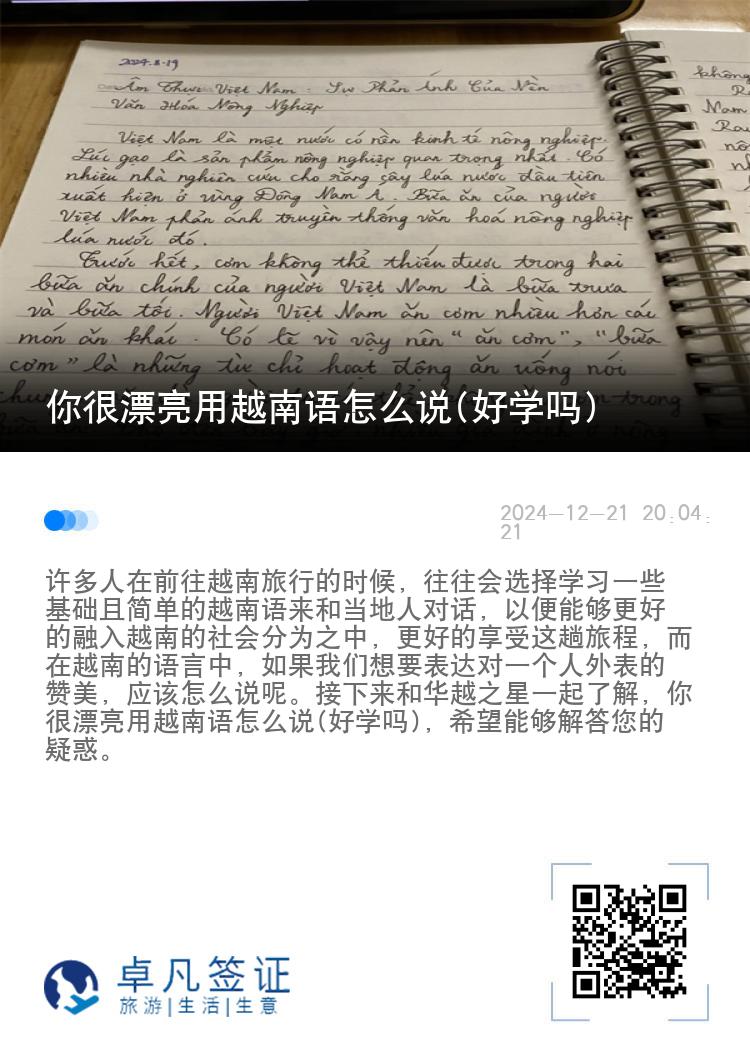 2024.8.19
Ẩm Thực Việt Nam : Sự Phản Ánh Của Nền
Văn Hóa Nông Nghiệp
Việt Nam là một nước có nền kinh tế nông nghiệp.
Lúc gạo là sản phẩm nông nghiệp quan trọng nhất. Có
nhiều nhà nghiên cứu cho rằng cây lúa nước đầu tiên
xuất hiện ở vùng Đông Nam Á. Bữa ăn của người
Việt Nam phản ánh truyền thống văn hoá nông nghiệp
lúa nước đó.
Trước hết, cơm không thể thiếu được trong hai
bữa ăn chính của người Việt Nam là bữa trưa
và bữa tối. Người Việt Nam ăn cơm nhiều hơn các
món ăn khác. Có lẽ vì vậy nên "ăn cơm", "bữa
cơm" là những từ chỉ hoạt động ăn uống nói
không
Nam
你很漂亮用越南语怎么说(好学吗)
2024-12-21 20:04:
21
许多人在前往越南旅行的时候，往往会选择学习一些
基础且简单的越南语来和当地人对话，以便能够更好
的融入越南的社会分为之中，更好的享受这趟旅程，而
在越南的语言中，如果我们想要表达对一个人外表的
赞美，应该怎么说呢。接下来和华越之星一起了解，你
很漂亮用越南语怎么说(好学吗)，希望能够解答您的
疑惑。
卓凡签证
旅游|生活|生意